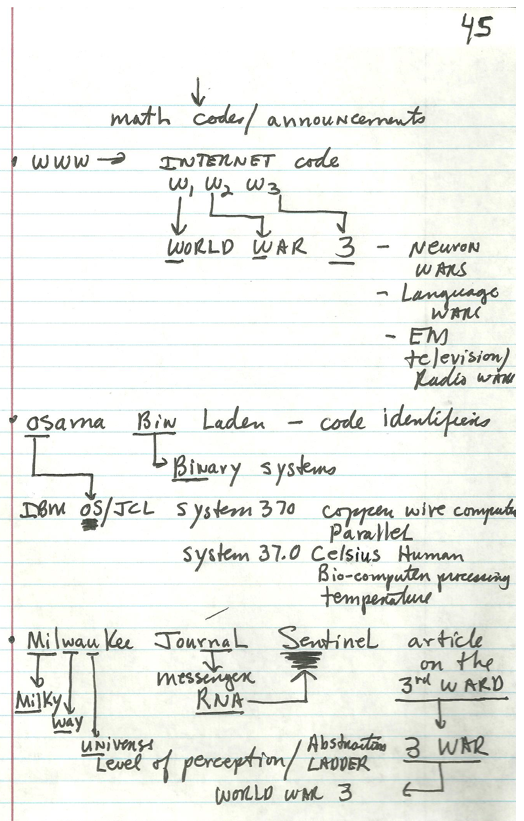 45
math codes/announcements
• WWW → INTERNET code
W1 W2 W3
WORLD WAR 3 - NEURON
WARS
- Language
WARS
- EM
television/
Radio WARS
• Osama Bin Laden - code identifiers
Binary systems
IBM OS/JCL system 370 copper wire computer
Parallel
system 37.0 Celsius Human
Bio-computer processing
temperature
• Milwaukee Journal Sentinel article
on the
messenger
RNA
3rd WARD
Milky
Way
universe
Level of perception/Abstraction
LADDER
3 WAR
WORLD WAR 3